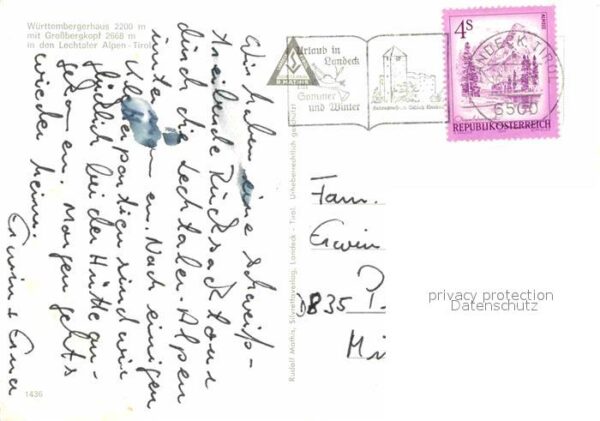 Württembergerhaus 2200 m
mit Großbergkopf 2668 m
in den Lechtaler Alpen - Tirol
Wir haben eine schweiß-
treibende Rucksacktour
durch die Lechtaler-Alpen
Nach einigen
Kletterpartien sind wir
glücklich bei der Hütte an-
gekommen. Morgen geht's
wieder heim.
Erwin + Erna
1436
Rudolf Mathis, Silvrettaverlag, Landeck - Tirol. Urheberrechtlich geschützt
R. MATHIS
Urlaub in
Landeck
im
Sommer
und Winter
LANDECK, TIROL
6500
4S
ALMSEE
REPUBLIK ÖSTERREICH
Fam.
Erwin
D835
Mi
privacy protection
Datenschutz